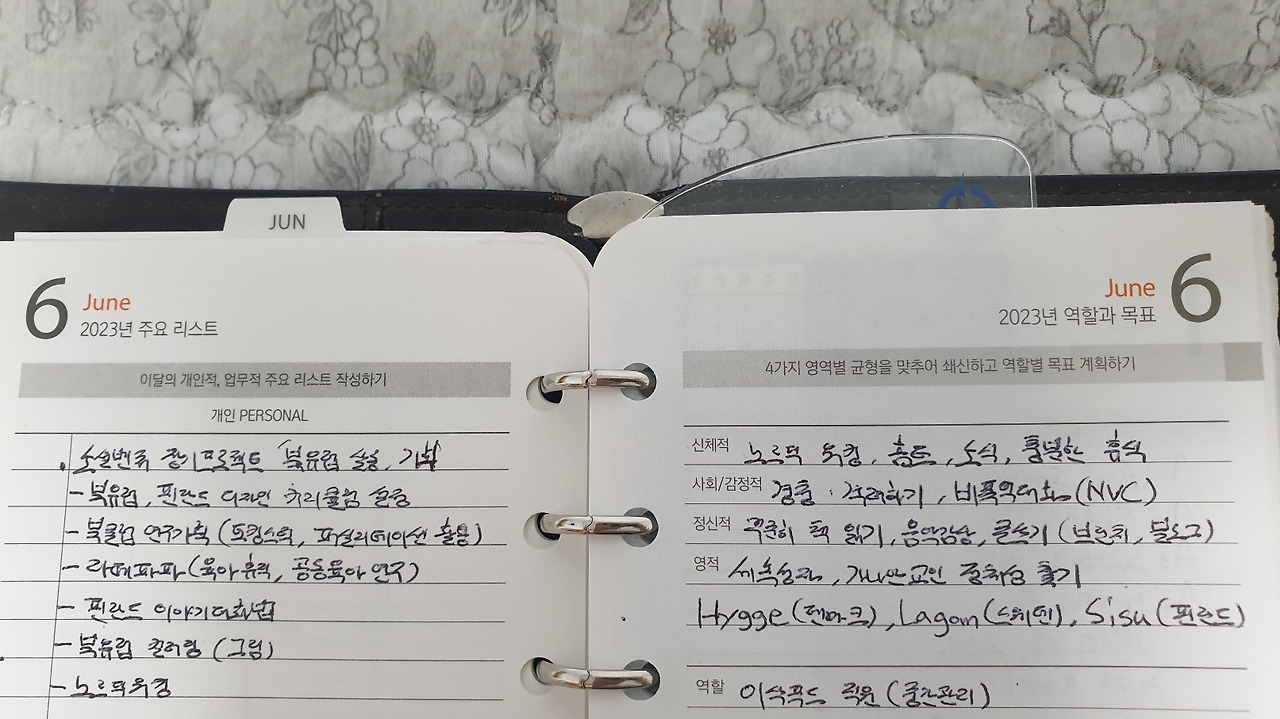 JUN
6 June
2023년 주요 리스트
이달의 개인적, 업무적 주요 리스트 작성하기
개인 PERSONAL
장기프로젝트 북유럽 살롱, 기획
- 북유럽, 핀란드 디자인 커리큘럼
- 북클럽 연구기획 (토킹스틱, 퍼실리테이션 활용)
- 라떼파파 (육아휴직, 공동육아 연구)
- 핀란드 이야기대화법
- 북유럽 컬러링 (그림)
- 노르딕워킹
June 6
2023년 역할과 목표
4가지 영역별 균형을 맞추어 쇄신하고 역할별 목표 계획하기
신체적 노르딕 워킹, 홈트, 소식, 충분한 휴식
사회/감정적 경청, 격려하기, 비폭력대화 (NVC)
정신적 꾸준히 책 읽기, 음악감상, 글쓰기 (브런치, 블로그)
영적 가나안교인 찾기
Hygge (덴마크), Lagom (스웨덴), Sisu (핀란드)
역할 직원 (중간관리)